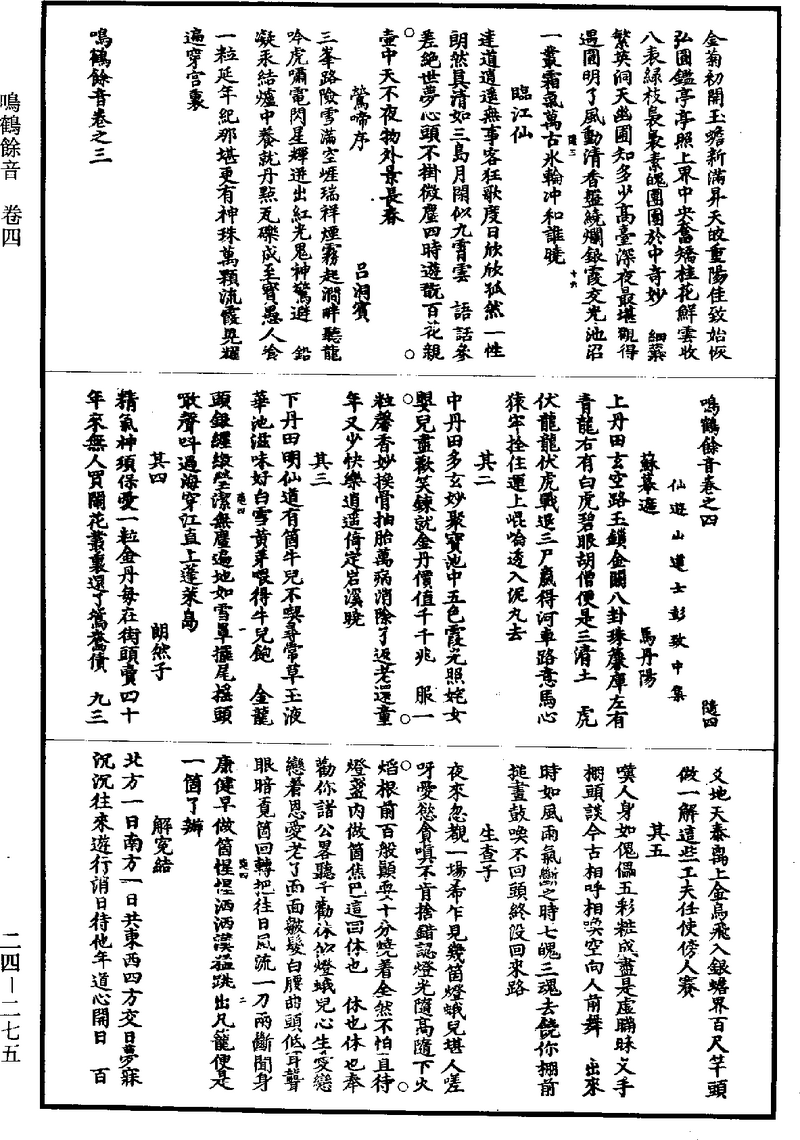 金菊初開玉蟾新滿昇天皎重陽佳致始恢
弘圓鑑亭亭照上界中央奮矯桂花鮮雲收
八表綠枝裊裊素魄團團於中奇妙　細蘂
繁英洞天幽圃知多少高臺深夜最堪觀得
遇圓明了風動清香盤繞爛銀霞交光池沼
一叢霜氣萬古氷輪冲和誰曉
臨江仙
達道逍遥無事客狂歌度日欣欣孤然一性
朗然真清如三島月閑似九霄雲　語話參
差絕世夢心頭不掛微塵四時遊翫百花親
壺中天不夜物外景長春
鶯啼序　呂洞賓
三峯路險雪滿空崕瑞祥煙霧起澗畔聽龍
吟虎嘯電閃星輝迸出紅光鬼神驚避　鉛
凝汞結爐中養就丹點瓦礫成至寳愚人飡
一粒延年紀那堪更有神珠萬顆流霞晃耀
遍穿宫裏
鳴鶴餘音卷之三
鳴鶴餘音卷之四　隨四
仙遊山道士彭致中集
蘇幕遮　馬丹陽
上丹田玄空路玉鎖金關八卦珠簾庫左有
青龍右有白虎碧眼胡僧便是三清土　虎
伏龍龍伏虎戰退三尸贏得河車路意馬心
猿牢拴住運上崐崘透入泥丸去
其二
中丹田多玄妙聚寳池中五色霞光照姹女
嬰兒盡歡笑鍊就金丹價值千千兆　服一
粒馨香妙換骨抽胎萬病消除了返老還童
年又少快樂逍遥倚定岩溪曉
其三
下丹田明仙道有箇牛兒不喫尋常草玉液
華池滋味好白雪黄芽喂得牛兒飽　金龍
頭銀纏綫瑩潔無塵遍地如雪罩擺尾揺頭
哮聲呌過海穿江直上蓬萊島
其四　朗然子
精氣神須保愛一粒金丹每在街頭賣四十
年來無人買閙花叢裏還了鴛鴦債　九三
爻地天泰离上金烏飛入銀蟾界百尺竿頭
做一解這些工夫任使傍人賽
其五
嘆人身如傀儡五彩粧成盡是虚瞞昧叉手
棚頭談今古相呼相喚空向人前舞　出來
時如風雨氣斷之時七魄三魂去饒你棚前
搥畫鼓喚不回頭終没回來路
生查子
夜來忽覩一場希乍見幾箇燈蛾兒堪人嗟
呀愛慾貪嗔不肯捨錯認燈光隨高隨下火
焰根前百般顯耍十分燒着全然不怕且待
燈盞内做箇焦巴這回休也　休也休也奉
勸你諸公畧聽予勸休似燈蛾兒心生愛戀
戀着恩愛老了面面皺髮白腰曲頭低耳聾
眼暗覓箇回轉把往日風流一刀兩斷閑身
康健早做箇惺惺洒洒漢猛跳出凡籠便是
一箇了辦
解寃結
北方一日南方一日共東西四方交日夢寐
沉沉往來遊行消日待他年道心開日　百
鳴鶴餘音　卷四
二四－二七五